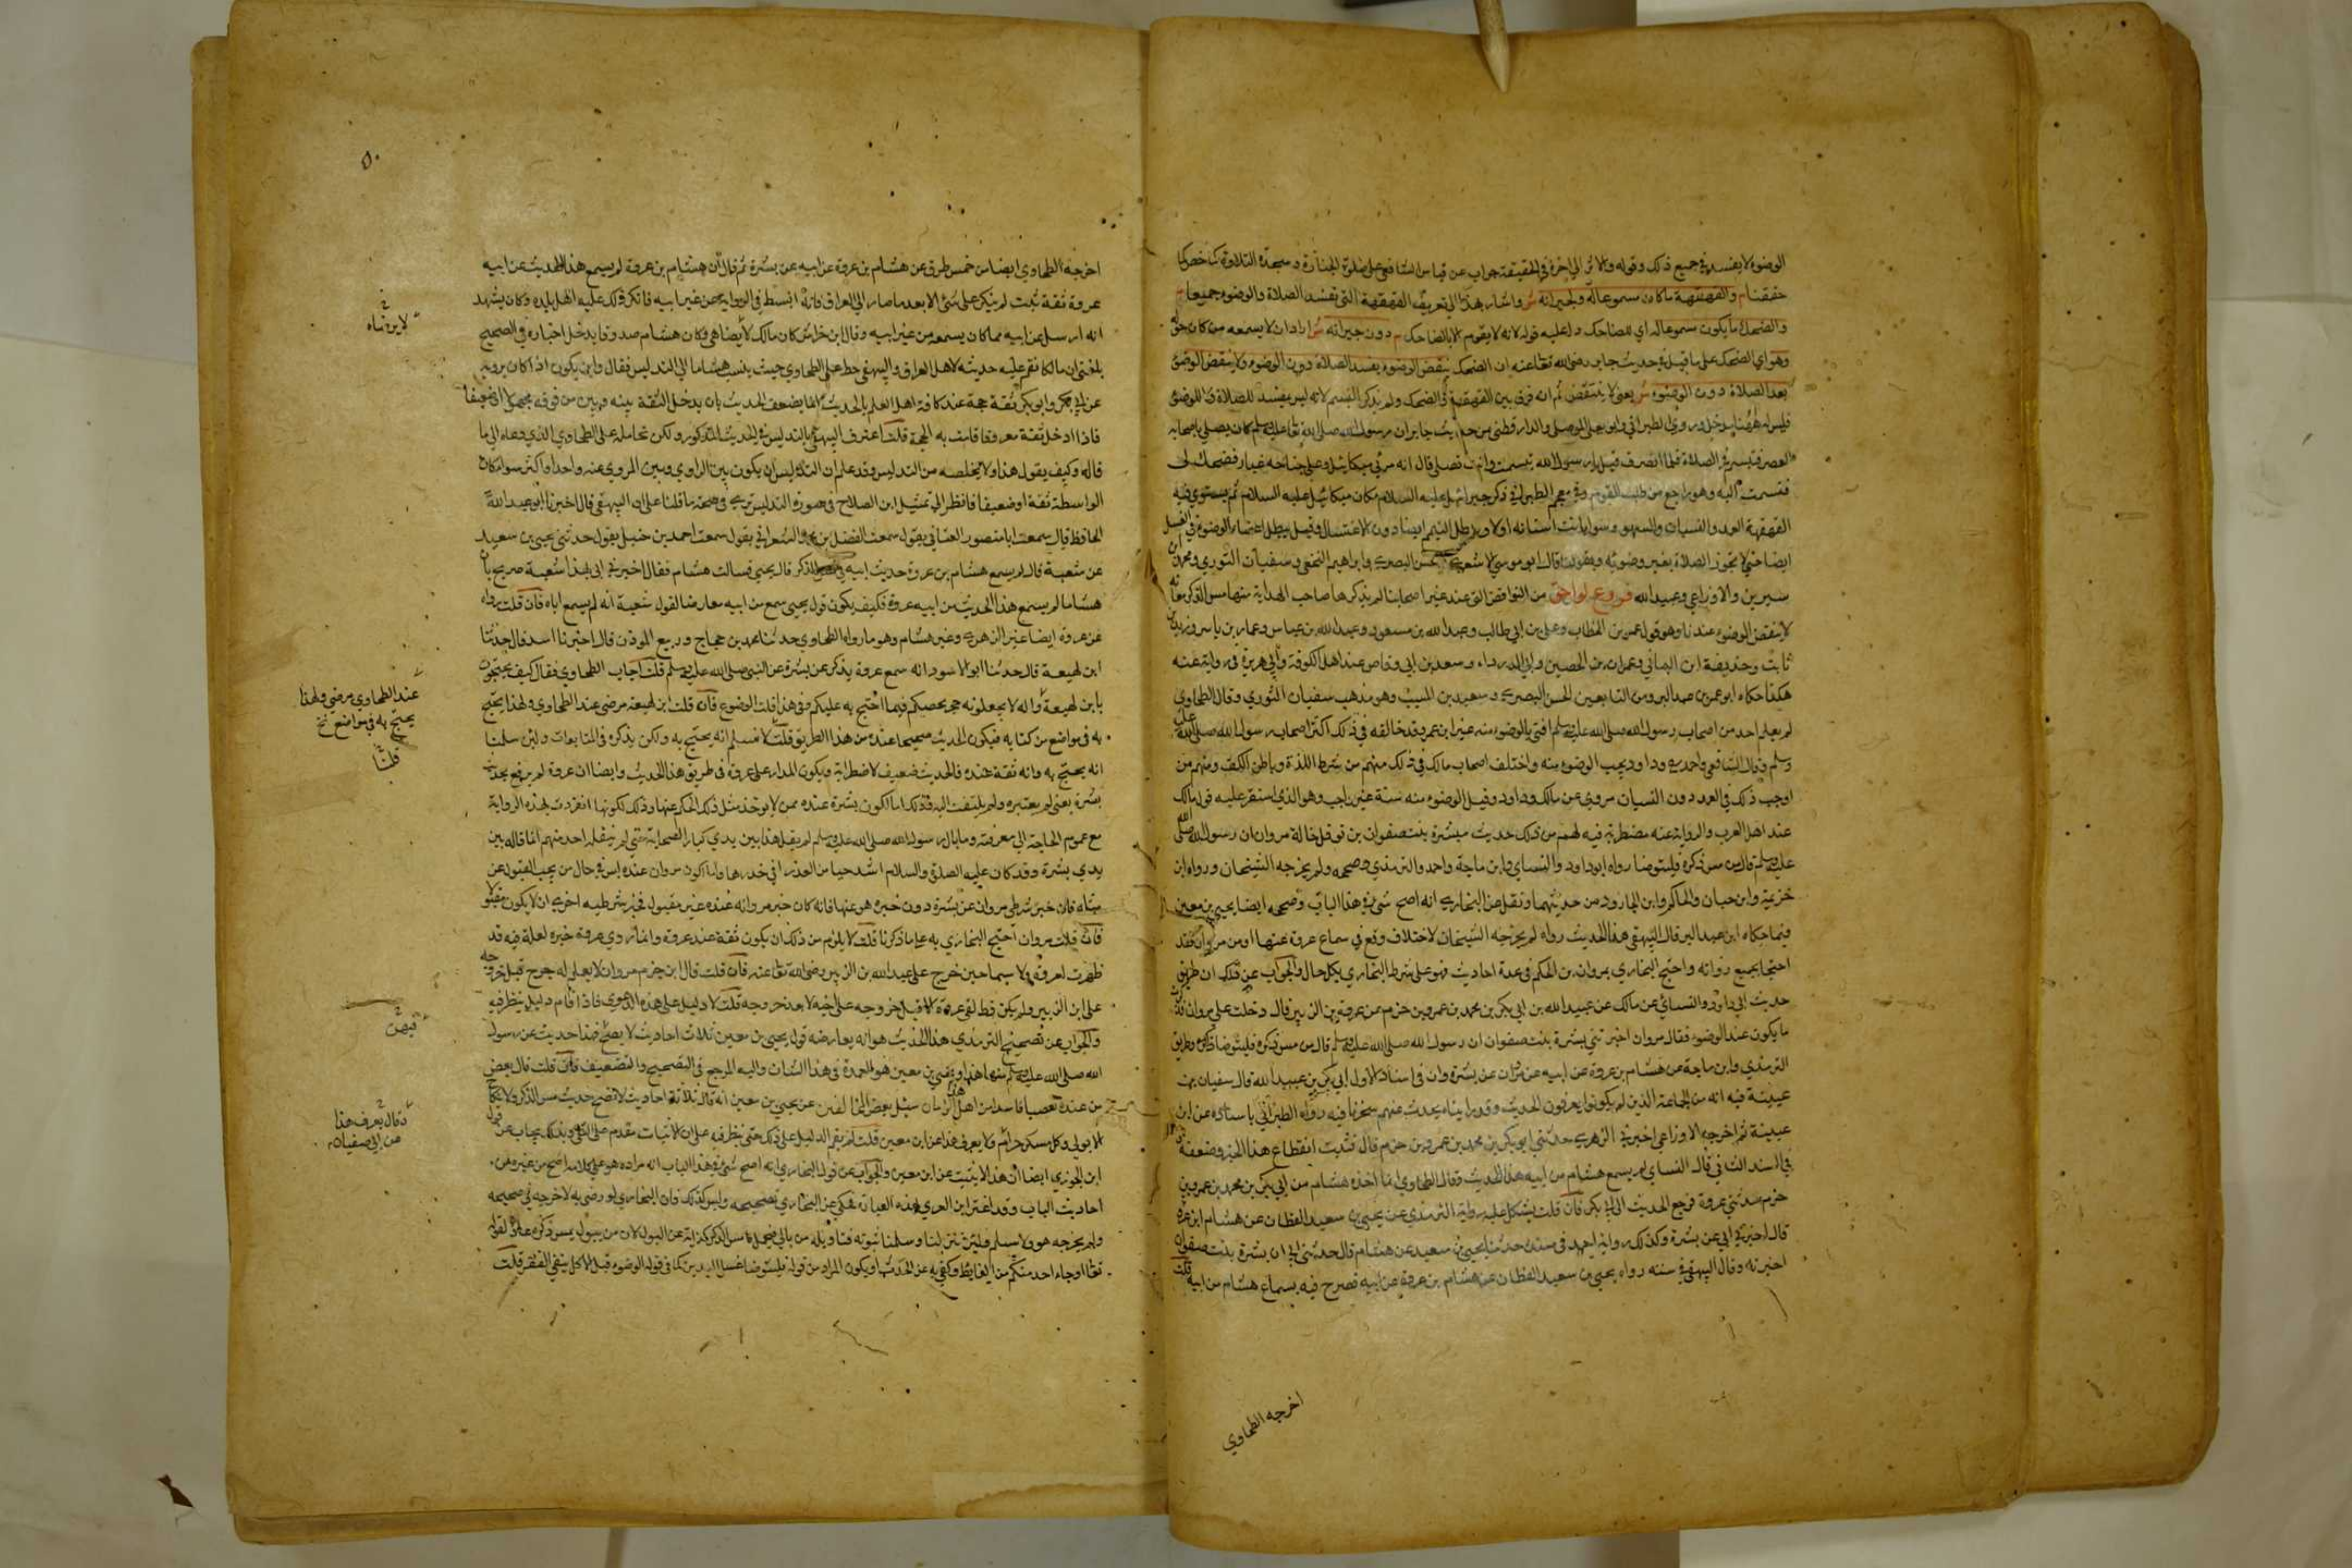 الوضوء لا يفسد في جميع ذلك وقوله والاثر الى اخره في الحقيقة جواب عن قياس الشافعي على صلوة الجنازة وسجدة التلاوة كما
حققنا م والقهقهة ما كان مسموعا له ولجيرانه ش واشار بهذا الى تعريف القهقهة التي تفسد الصلاة والوضوء جميعا م
والضحك ما يكون مسموعا له اي للضاحك قوله لانه لا يقوم الا بالضاحك م دون جيرانه ش اراد ان لا يسمعه من كان
وهو اي الضحك على ما قيل في حديث جابر رضي الله تعالى عنه ان الضحك ينقض الوضوء يفسد الصلاة دون الوضوء ولا ينقض الوضوء
يفسد الصلاة دون الوضوء ش يعني لا ينتقض ثم انه فرق بين القهقهة في الضحك ولم يذكر التبسم لانه ليس بمفسد للصلاة ولا للوضوء
فليس له ههنا مدخل وروى الطبراني وابو يعلى الموصلي والدارقطني من حديث جابر ان رسول الله صلى الله تعالى عليه وسلم كان يصلي باصحابه
العصر فتبسم في الصلاة فلما انصرف قيل يا رسول الله تبسمت وانت تصلي قال انه مر بي ميكائيل وعلى جناحه غبار فضحك لي
فتبسمت اليه وهو راجع من طلب القوم وفي معجم الطبراني ذكر جبرائيل عليه السلام مكان ميكائيل عليه السلام ثم يستوي فيه
القهقهة العمد والنسيان والسهو وسوا بانت اسنانه او لا ويبطل التيمم ايضا دون الاغتسال وقيل يبطل اعضاء الوضوء في الغسل
ايضا حتى لا تجوز الصلاة بغير وضوئه وبقولنا قال ابو موسى الاشعري والحسن البصري وابراهيم النخعي وسفيان الثوري ومحمد بن
سيرين والاوزاعي وعبيد الله فروع لواحق من النواقض التي عند غير اصحابنا لم يذكرها صاحب الهداية منها مس الذكر فانه
لا ينقض الوضوء عندنا وهو قول عمر بن الخطاب وعلي بن ابي طالب وعبد الله بن مسعود وعبد الله بن عباس وعمار بن ياسر وزيد بن
ثابت وحذيفة ابن اليماني وعمران بن الحصين وابي الدرداء وسعد بن ابي وقاص عند اهل الكوفة وابي هريرة في رواية عنه
هكذا حكاه ابو عمر بن عبد البر ومن التابعين الحسن البصري وسعيد بن المسيب وهو مذهب سفيان الثوري وقال الطحاوي
لم يعلم احد من اصحاب رسول الله صلى الله عليه وسلم افتى بالوضوء منه غير ابن عمر وقد خالفه في ذلك اكثر اصحاب رسول الله صلى الله عليه
وسلم وقال الشافعي واحمد وداود يجب الوضوء منه واختلف اصحاب مالك في ذلك منهم من شرط اللذة وباطن الكف ومنهم من
اوجب ذلك في العمد دون النسيان مروي عن مالك وداود وقيل الوضوء منه سنة غير واجب وهو الذي استقر عليه قول مالك
عند اهل الغرب والرواية عنه مضطربة فيه لهم من ذلك حديث بسرة بنت صفوان بن نوفل خالة مروان ان رسول الله صلى الله
عليه وسلم قال من مس ذكره فليتوضا رواه ابو داود والنسائي وابن ماجة واحمد والترمذي وصححه ولم يخرجه الشيخان ورواه ابن
خزيمة وابن حبان والحاكم وابن الجارود من حديثهما ونقل عن البخاري انه اصح شيء في هذا الباب وصححه ايضا يحيى بن معين
فيما حكاه ابن عبد البر قال البيهقي هذا الحديث رواه لم يخرجه الشيخان لاختلاف وقع في سماع عروة عنها او من مروان فقد
احتجا بجميع رواته واحتج البخاري بمروان بن الحكم في عدة احاديث فهو على شرط البخاري بكل حال والجواب عن ذلك ان طريق
حديث ابي داود والنسائي عن مالك عن عبيد الله بن ابي بكر بن محمد بن عمرو بن حزم عن عروة بن الزبير قال دخلت على مروان فذكر
ما يكون عنه الوضوء فقال مروان اخبرتني بسرة بنت صفوان ان رسول الله صلى الله عليه وسلم قال من مس ذكره فليتوضا وطريق
الترمذي وابن ماجة عن هشام بن عروة عن ابيه عن مروان عن بسرة وان في اسناد الاول ابي بكر بن عبيد الله قال سفيان بن
عيينة فيه انه من الجماعة الذين لم يكونوا يعرفون الحديث وقد راينا من يحدث عنهم سخرنا فيه رواه الطبراني باسناده عن ابن
عيينة ثم اخرجه الاوزاعي اخبرني الزهري حدثني ابو بكر بن محمد بن عمرو بن حزم قال فثبت انقطاع هذا الخبر وضعفه
في السند الثاني قال النسائي لم يسمع هشام من ابيه هذا الحديث وقال الطحاوي انما اخذه هشام من ابي بكر بن محمد بن عمرو بن
حزم حدثني عروة فرجع الحديث الى ابي بكر فان قلت يشكل عليه رواية الترمذي عن يحيى بن سعيد القطان عن هشام ابن عروة
قال اخبرني ابي عن بسرة وكذلك رواية احمد في مسنده حدثنا يحيى بن سعيد عن هشام قال حدثني ابي ان بسرة بنت صفوان
اخبرته وقال البيهقي في سننه رواه يحيى بن سعيد القطان عن هشام بن عروة عن ابيه فصرح فيه بسماع هشام من ابيه قلت
اخرجه الطحاوي
٥٠
اخرجه الطحاوي ايضا من خمس طرق عن هشام بن عروة عن ابيه عن بسرة ثم قال ان هشام بن عروة لم يسمع هذا الحديث عن ابيه
عروة ثقة ثبت لم ينكر على شيء الا بعد ما صار الى العراق فانه انبسط في الرواية عن غير ابيه فانكر ذلك عليه اهل بلده وكان يشهد
انه ارسل عن ابيه مما كان يسمعه من غير ابيه وقال ابن خراش كان مالك لا يرضاه وكان هشام صدوقا يدخل اخباره في الصحيح
بلغني ان مالكا نقم عليه حديثه لاهل العراق والبيهقي حط على الطحاوي حيث ينسب هشاما الى التدليس فقال واين يكون اذا كان يرويه
عن ابي بكر وابو بكر ثقة حجة عند كافة اهل العلم بالحديث انما يضعف الحديث بان يدخل الثقة بينه وبين من فوقه مجهولا او ضعيفا
فاذا ادخل ثقة معروفا قامت به الحجة قلت اعترف البيهقي بالتدليس في الحديث المذكور ولكن تحامله على الطحاوي الذي دعاه الى ما
قاله وكيف يقول هذا ولا يخلصه من التدليس وقد علم ان التدليس ان يكون بين الراوي وبين المروي عنه واحدا واكثر سوا كان
الواسطة ثقة او ضعيفا فانظر الى تمثيل ابن الصلاح في صورة التدليس وصحة ما قلنا على ان البيهقي قال اخبرنا ابو عبد الله
الحافظ قال سمعت ابا منصور العتابي يقول سمعت الفضل بن محمد الشعراني يقول سمعت احمد بن حنبل يقول حدثني يحيى بن سعيد
عن شعبة قال لم يسمع هشام بن عروة حديث ابيه في الذكر قال يحيى فسالت هشام فقال اخبرني ابي فهذا شعبة صريح بان
هشاما لم يسمع هذا الحديث من ابيه عروة فكيف يكون قول يحيى سمع من ابيه معارضا لقول شعبة انه لم يسمع اباه فان قلت رواه
عن عروة ايضا غير الزهري وغير هشام وهو ما رواه الطحاوي حدثنا محمد بن حجاج وربيع المؤذن قال اخبرنا اسد قال حدثنا
ابن لهيعة قال حدثنا ابو الاسود انه سمع عروة يذكر عن بسرة عن النبي صلى الله عليه وسلم قلت اجاب الطحاوي فقال كيف يحتجون
بابن لهيعة واله لا يجعلونه حجة لخصمكم فيما احتج به عليكم وفي هذا قلت الوضوع فان قلت ابن لهيعة مرضي عند الطحاوي ولهذا يحتج
به في مواضع من كتابه فيكون الحديث صحيحا عنده من هذا الطريق قلت لا نسلم انه يحتج به ولكن يذكره في المتابعات ولئن سلمنا
انه يحتج به وانه ثقة عنده فالحديث ضعيف لاضطرابه ويكون المدار على عروة في طريق هذا الحديث وايضا ان عروة لم يرفع بحديث
بسرة يعني لم يعتبره ولم يلتفت اليه وذلك اما لكون بسرة عنده ممن لا يؤخذ مثل ذلك الحكم عنها وذلك لكونها انفردت بهذه الرواية
مع عموم الحاجة الى معرفته وما بال رسول الله صلى الله عليه وسلم لم يقل هذا بين يدي كبار الصحابة حتى لم ينقله احد منهم انما قاله بين
يدي بسرة وقد كان عليه الصلوة والسلام اشد حيا من العذرا في خدرها واما لكون مروان عنده ليس في حال من يجب القبول عن
مثله فان خبر شرطي مروان عن بسرة دون خبره هو عنها فانه كان خبر مروانه عنده غير مقبول فخبر شرطيه احرى ان لا يكون مقبولا
فان قلت مروان احتج البخاري به على ما ذكرنا قلت لا يلزم من ذلك ان يكون ثقة عند عروة وانما روى عروة خبره لعلة فيه قد
ظهرت لعروة ولا سيما حين خرج على عبد الله بن الزبير رضي الله تعالى عنه فان قلت قال ابن حزم مروان لا يعلم له جرح قبل خروجه
على ابن الزبير ولم يكن قط لقي عروة الا قبل خروجه على اخيه لا بعد خروجه قلت لا دليل على هذه الدعوى فاذا اقام دليل ينظر فيه
والجواب عن تصحيح الترمذي هذا الحديث هو انه يعارضه قول يحيى بن معين ثلاث احاديث لا يصح فيها حديث عن رسول
الله صلى الله عليه وسلم منها هذا ويحيى بن معين هو العمدة في هذا الشان واليه المرجع في التصحيح والتضعيف فان قلت قال بعض
من عنده تعصبا فاسدا من اهل هذا الزمان سئل بعض المخالفين عن يحيى بن معين انه قال ثلاثة احاديث لا تصح حديث مس الذكر ولا نكاح
الا بولي وكل مسكر حرام ولا يعرف هذا عن ابن معين قلت لم يقم الدليل على ذلك حتى ينظر فيه على ان الاثبات مقدم على النفي وبذلك يجاب عن قول
ابن الجوزي ايضا ان هذا لا يثبت عن ابن معين والجواب عن قول البخاري انه اصح شيء في هذا الباب انه مراده هو على ما اصح من غيره من
احاديث الباب وقد اغتر ابن العربي بهذه العبارة فحكى عن البخاري تصحيحه وليس كذلك فان البخاري لو رضي به لاخرجه في صحيحه
ولم يخرجه هو ولا مسلم ولئن تنزلنا وسلمنا ثبوته فتاويله من بال فجعل مس الذكر كناية عن البول لان من يبول يمس ذكره عادة لقوله
تعالى او جاء احد منكم من الغايط وكني به عن الحدث او يكون المراد من قوله فليتوضا غسل اليدين كما في قوله الوضوء قبل الاكل ينفي الفقر قلت
لا يرضاه
عند الطحاوي مرضي ولهذا
يحتج به في مواضع نخ
قلنا
فيهن
وقال يعرف هذا